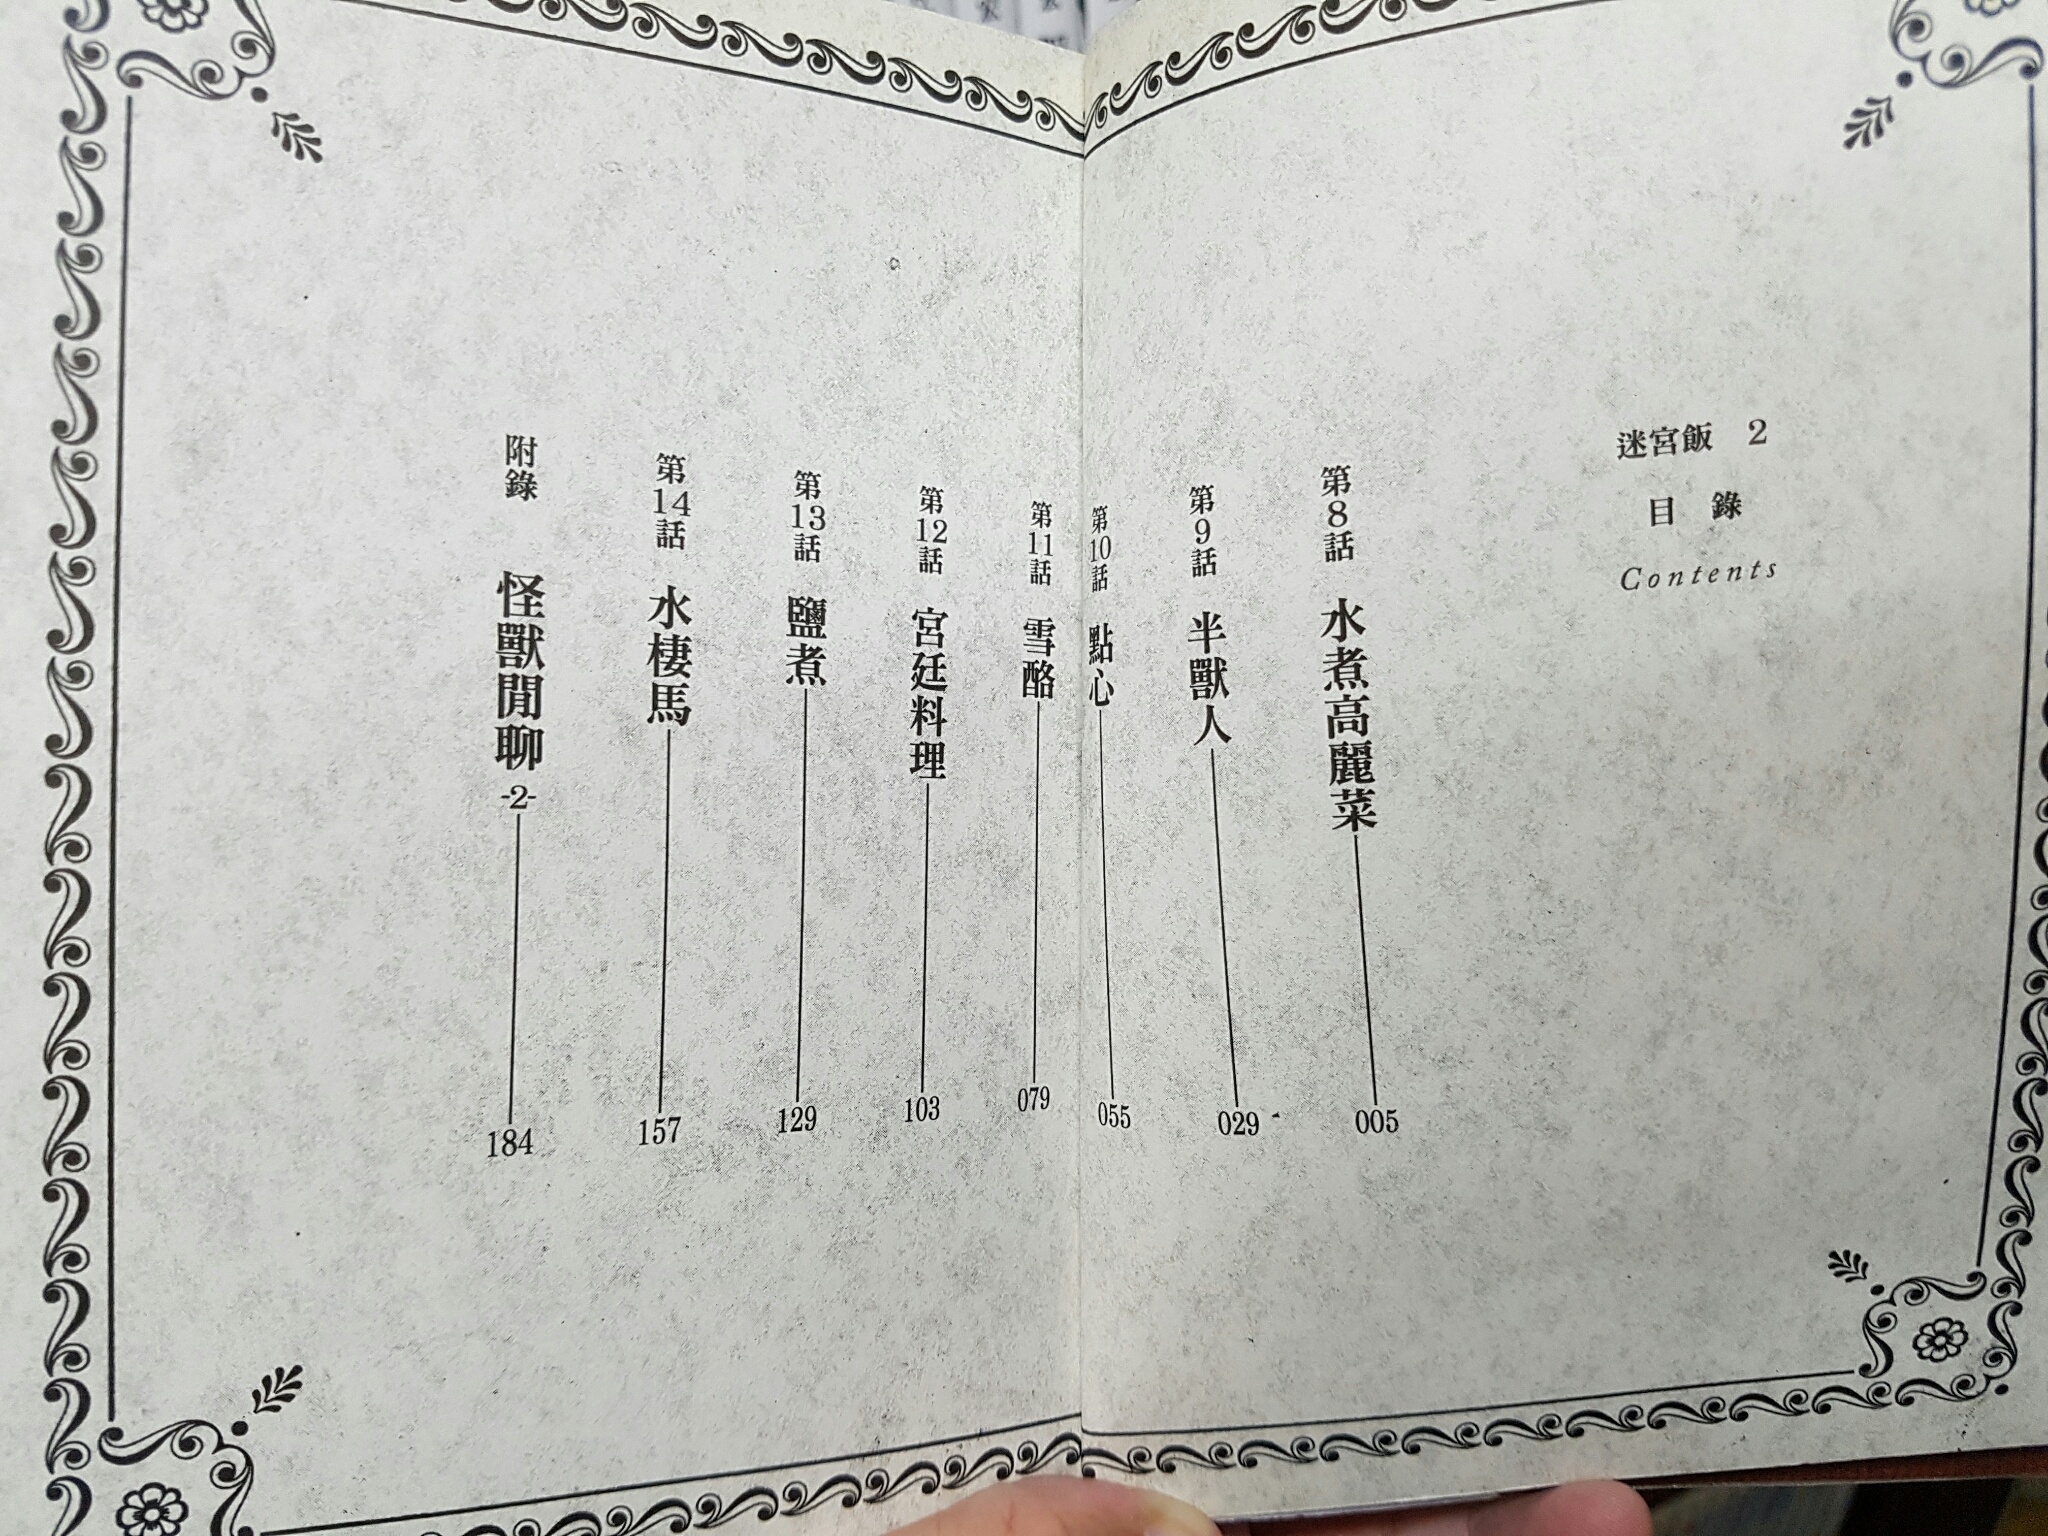 迷宮飯 2
目錄
Contents
第8話 水煮高麗菜 005
第9話 半獸人 029
第10話 點心 055
第11話 雪酪 079
第12話 宮廷料理 103
第13話 鹽煮 129
第14話 水棲馬 157
附錄 怪獸閒聊 -2- 184